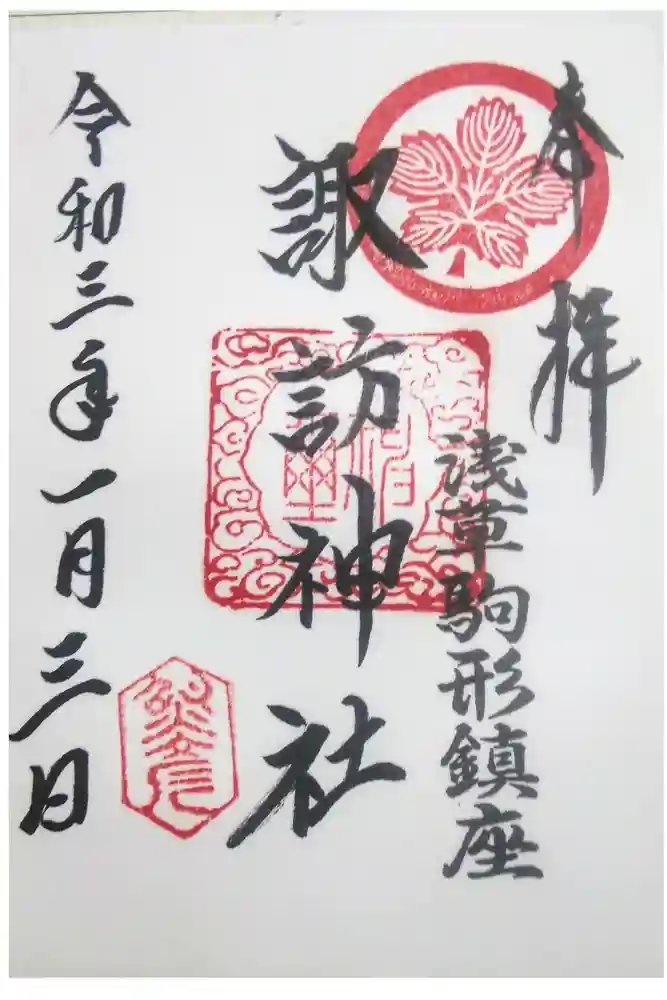 奉拝
浅草駒形鎮座
諏訪神社
令和三年一月三日